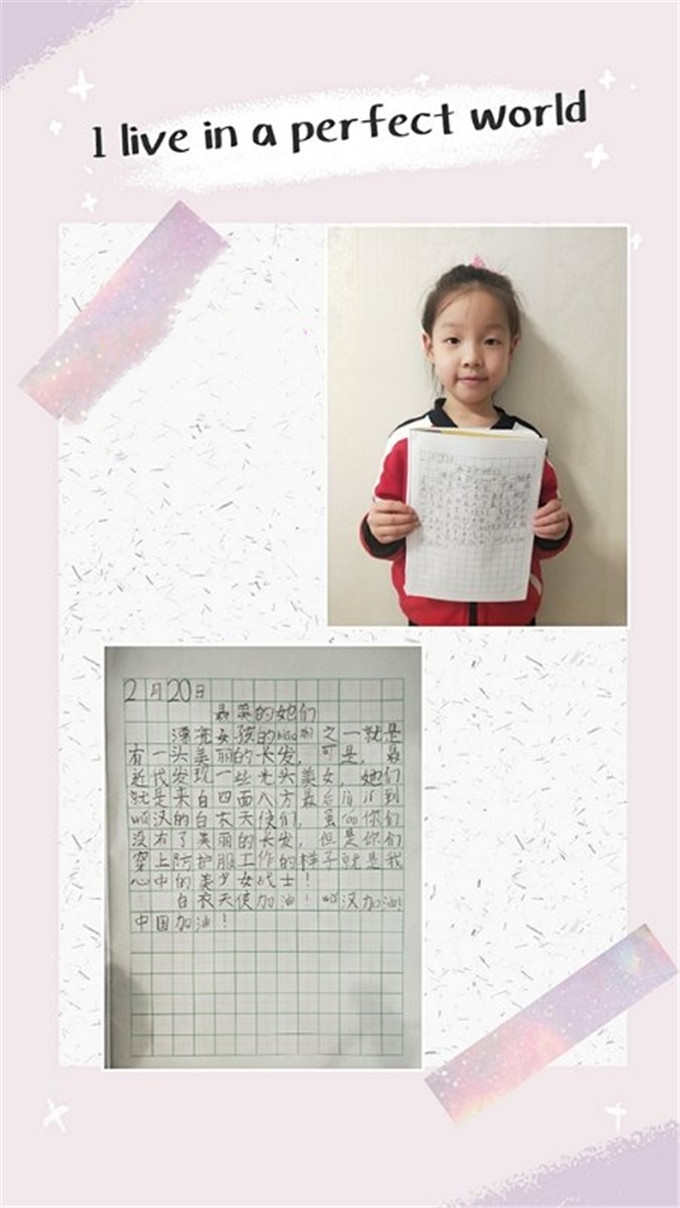 I live in a perfect world
2月20日
最美的她们
漂亮女孩的 之一就是
有一头美丽的长发，可是，最
近 发现一些光头美女，她们
就是来自四面八方最后 到
wǔ汉的白衣天使们，虽 你们
没有了美丽的长发，但是你们
穿上防护服工作的样子就是我
心中的美少女战士！
白衣天使加油！wǔ汉加油！
中国加油！